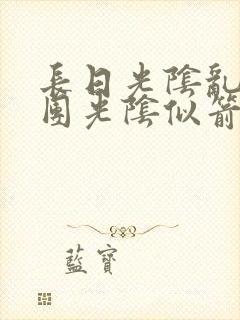 長日光陰亂
園光陰似箭
藍寶